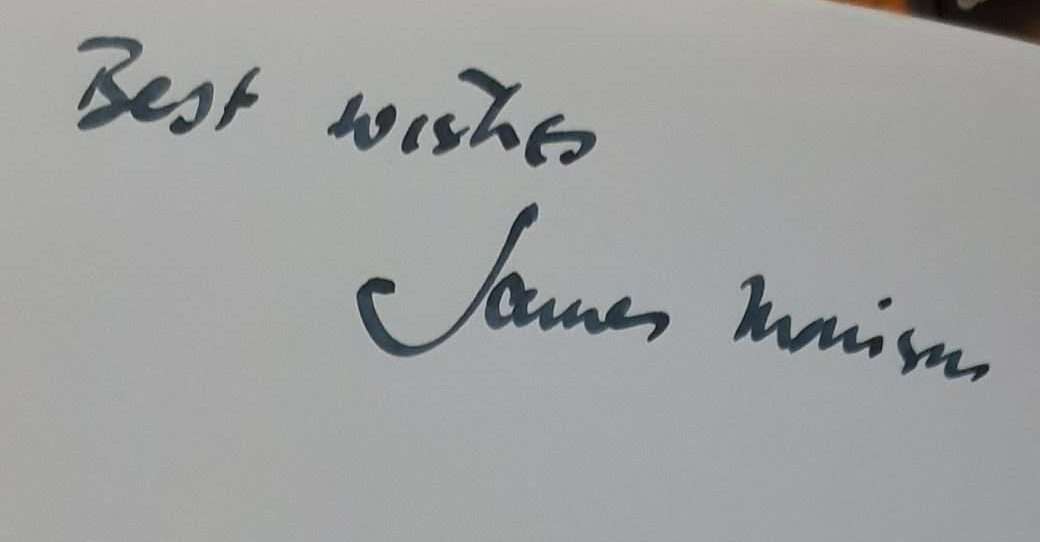 Best wishes
James Morrison